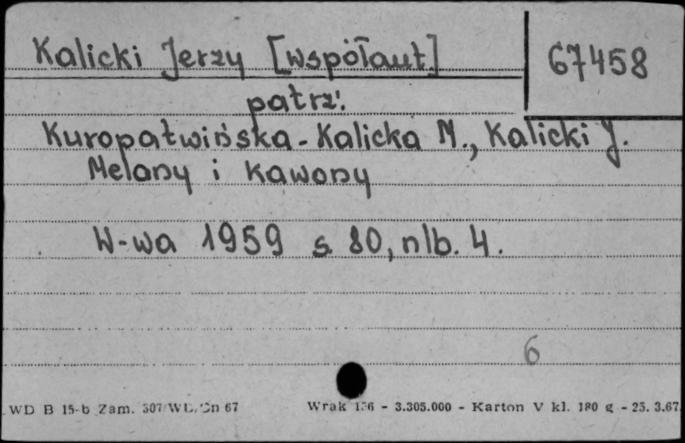 Kalicki Jerzy [współaut]
67458
patrz:
Kuropatwińska-Kalicka M., Kalicki J.
Melony i kawony
W-wa 1959 s 80, nlb. 4.
6
WD B 15-b Zam. 307 67
Wrak - 3.305.000 - Karton V kl. 180 g - 25.3.67